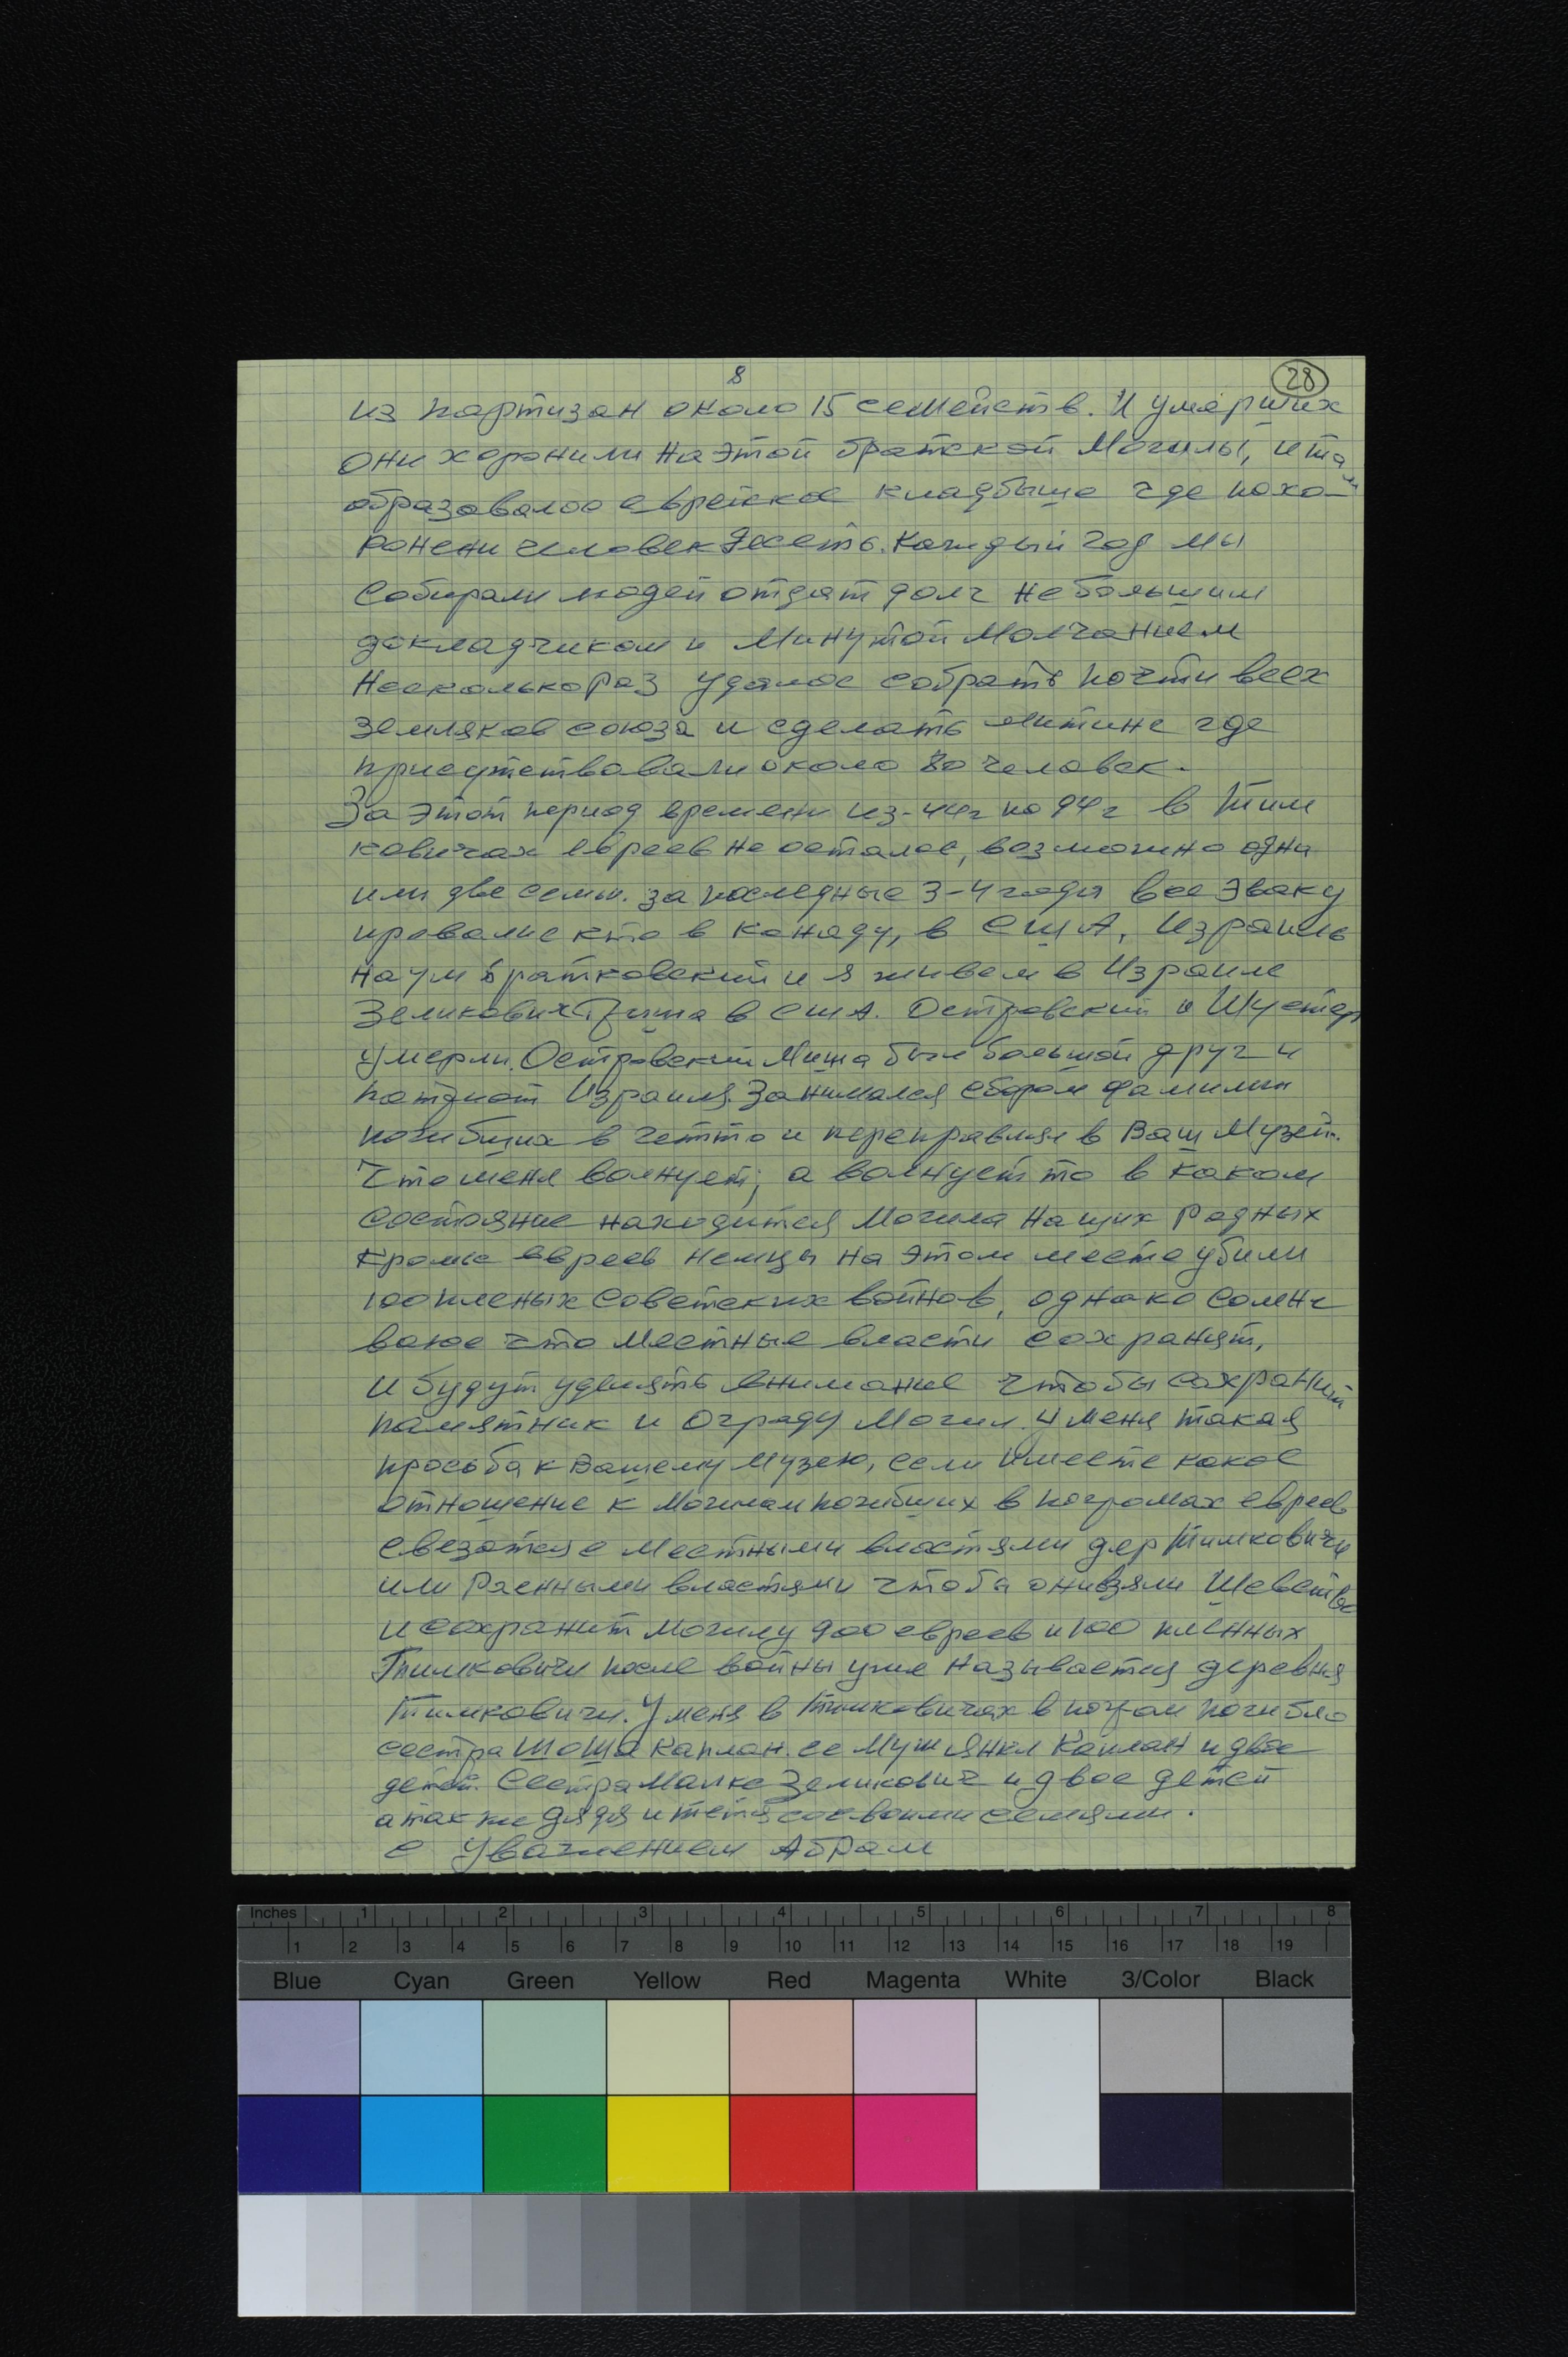 8
28
из партизан около 15 семейств. И умерших
они хоронили на этой братской Могилы, и там
образовалос еврейское кладбыще где похо-
ронени человек десеть. Каждый год мы
собирали людей отдат долг небольшим
докладчиком и Минутой Молчанием
Несколько раз удалос собрать почти всех
земляков союза и сделать митинг где
присутствовали около 80 человек.
За этот период времени из-44г по 94г в Тим
ковичах евреев не осталос, возможно одна
или две семи. за последные 3-4 года все эваку
ировалис кто в Канаду, в США, Израиль
Наум Братковский и я живем в Израиле
Зеликович Гриша в США. Островский и Шустер
умерли. Островский Миша был большой друг и
патриот Израиля. Занимался сбором фамилии
погибших в гетто и переправлял в Ваш Музей.
Что меня волнует; а волнует то в каком
состояние находится Могила Наших Родных
кроме евреев немцы на этом месте убили
100 пленых советских войнов, однако сомне
ваюс что Местные власти сохранят,
и будут уделять внимание чтобы сохранит
памятник и Ограду Могил. У меня такая
просьба к Вашему Музею, если имеете какое
отношение к Могилам погибших в погромах евреев
свезатся с Местными властями дер Тимковичи
или Раенными властями чтоба они взяли Шевство
и сохранит Могилу 900 евреев и 100 пленных
Тимковичи после войны уже называется деревня
Тимковичи. У меня в Тимковичах в погром погибло
сестра Шоша Каплан. ее Муж Янкл Каплан и двое
детей. Сестра Малке Зеликович и двое детей
а так же дядя и тетя со своими семями.
с Уважением Абрам
Inches 1 2 3 4 5 6 7 8
1 2 3 4 5 6 7 8 9 10 11 12 13 14 15 16 17 18 19
Blue Cyan Green Yellow Red Magenta White 3/Color Black